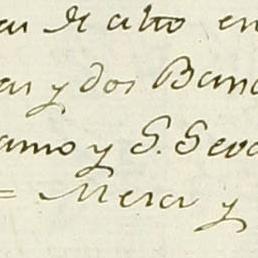 de alto en
y dos Banc
amo y S. Seva
= Mesa y